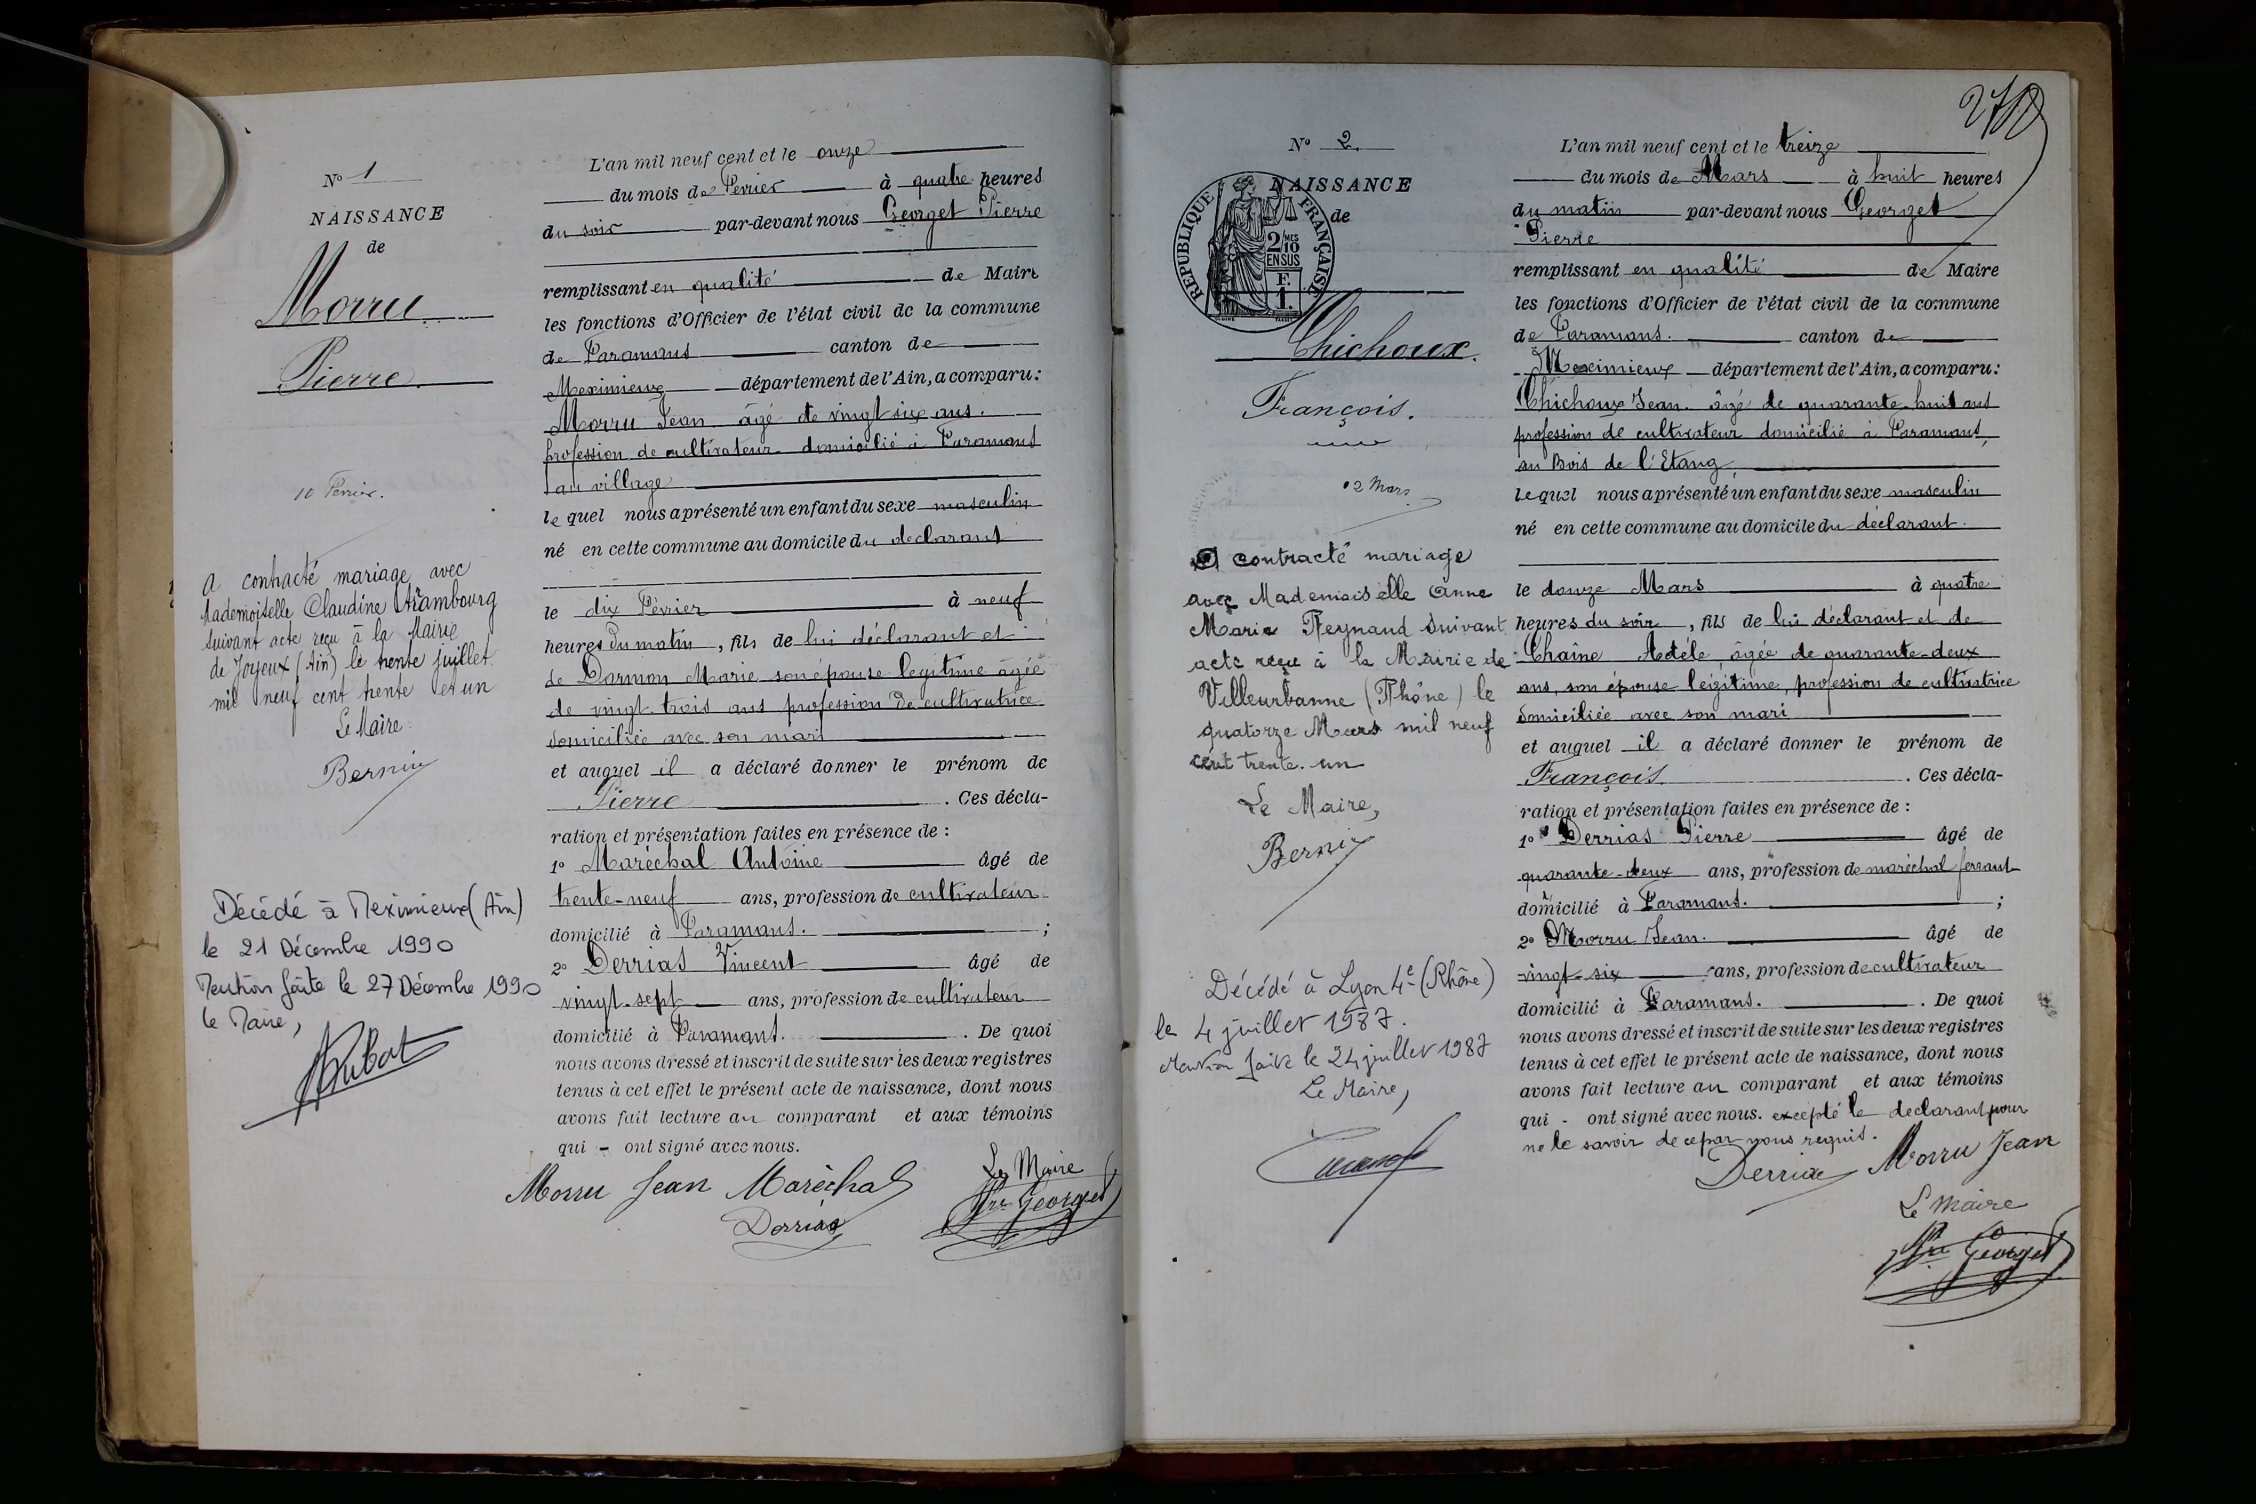 N° 1
NAISSANCE
de
Morru
Pierre
10 Février.
A contracté mariage avec
Mademoiselle Claudine Arambourg
suivant acte reçu à la Mairie
de Joyeux (Ain) le trente juillet
mil neuf cent trente et un
Le Maire
Bernin
Décédé à Meximieux (Ain)
le 21 Décembre 1990
Mention faite le 27 Décembre 1990
le Maire,
L'an mil neuf cent et le onze
du mois de Février à quatre heures
du soir par-devant nous Georget Pierre
remplissant en qualité de Maire
les fonctions d'Officier de l'état civil de la commune
de Faramans canton de
Meximieux département de l'Ain, a comparu:
Morru Jean âgé de vingt six ans.
profession de cultivateur domicilié à Faramans
au village
le quel nous a présenté un enfant du sexe masculin
né en cette commune au domicile du déclarant
le dix Février à neuf
heures du matin, fils de lui déclarant et
de Darmon Marie son épouse légitime âgée
de vingt trois ans profession de cultivatrice
domiciliée avec son mari
et auquel il a déclaré donner le prénom de
Pierre . Ces décla-
ration et présentation faites en présence de :
1° Maréchal Antoine âgé de
trente-neuf ans, profession de cultivateur
domicilié à Faramans. ;
2° Derrias Vincent âgé de
vingt-sept ans, profession de cultivateur
domicilié à Faramans. . De quoi
nous avons dressé et inscrit de suite sur les deux registres
tenus à cet effet le présent acte de naissance, dont nous
avons fait lecture au comparant et aux témoins
qui - ont signé avec nous.
Morru Jean Maréchal
Le Maire
Derrias
Pre Georget
N° 2.
NAISSANCE
de
REPUBLIQUE FRANÇAISE
2/10 MES
EN SUS
F.
1.
Chichoux.
François.
12 Mars
A contracté mariage
avec Mademoiselle Anne
Marie Reynaud suivant
acte reçu à la Mairie de
Villeurbanne (Rhône) le
quatorze Mars mil neuf
cent trente. un
Le Maire,
Bernin
Décédé à Lyon 4e (Rhône)
le 4 juillet 1987.
Mention faite le 24 juillet 1987
Le Maire,
L'an mil neuf cent et le treize
du mois de Mars à huit heures
du matin par-devant nous Georget
Pierre
remplissant en qualité de Maire
les fonctions d'Officier de l'état civil de la commune
de Faramans. canton de
Meximieux département de l'Ain, a comparu:
Chichoux Jean. âgé de quarante-huit ans
profession de cultivateur domicilié à Faramans,
au Bois de l'Etang,
le quel nous a présenté un enfant du sexe masculin
né en cette commune au domicile du déclarant.
le douze Mars à quatre
heures du soir, fils de lui déclarant et de
Chaîne Adèle, âgée de quarante-deux
ans, son épouse légitime, profession de cultivatrice
domiciliée avec son mari
et auquel il a déclaré donner le prénom de
François . Ces décla-
ration et présentation faites en présence de :
1° Derrias Pierre âgé de
quarante-deux ans, profession de maréchal ferrant
domicilié à Faramans. ;
2° Morru Jean. âgé de
vingt-six ans, profession de cultivateur
domicilié à Faramans. . De quoi
nous avons dressé et inscrit de suite sur les deux registres
tenus à cet effet le présent acte de naissance, dont nous
avons fait lecture au comparant et aux témoins
qui - ont signé avec nous. excepté le declarant pour
ne le savoir de ce par nous requis.
Derrias Morru Jean
Le Maire
Pre Georget